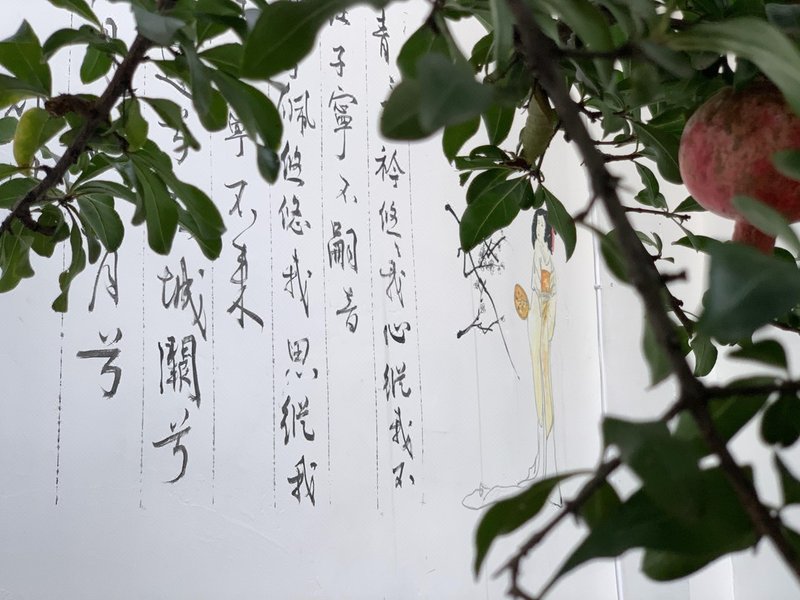 青衿悠々我心縱我不
子寧不嗣音
佩悠悠我思縱我
寧不来
城闕兮
月兮